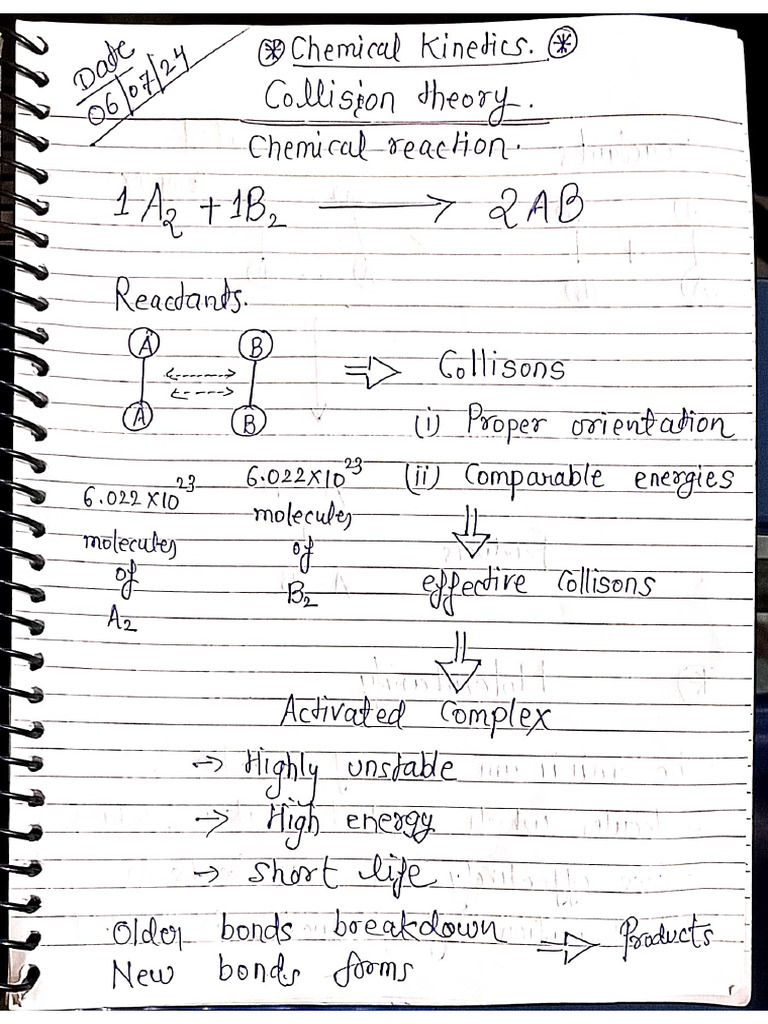 Date
06/07/24
⊛ Chemical Kinetics. ⊛
Collision theory.
Chemical reaction.
1 A₂ + 1B₂ ⟶ 2AB
Reactants.
A B ⇒ Collisons
A B (i) Proper orientation
6.022×10²³ 6.022×10²³ (ii) Comparable energies
molecules molecules
of of
A₂ B₂
⇓
effective Collisons
⇓
Activated Complex
→ Highly unstable
→ High energy
→ Short life
Older bonds breakdown ⇒ Products
New bonds forms